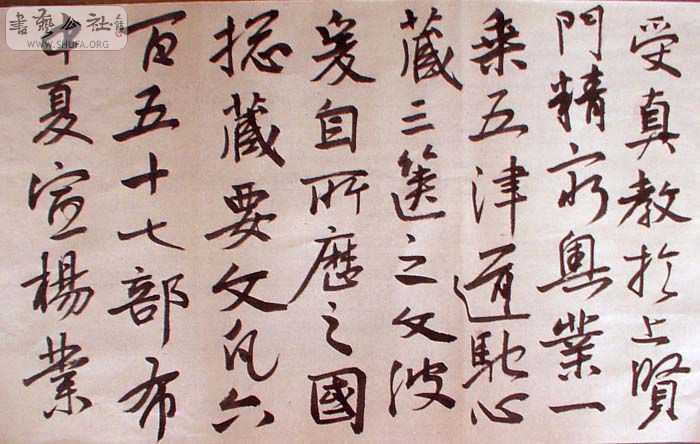 受真教於上賢
門精窮奧業一
乘五津道馳心
藏三篋之文波
爰自所歷之國
捴藏要文凡六
百五十七部布
中夏宣楊業
書藝公社
WWW.SHUFA.ORG